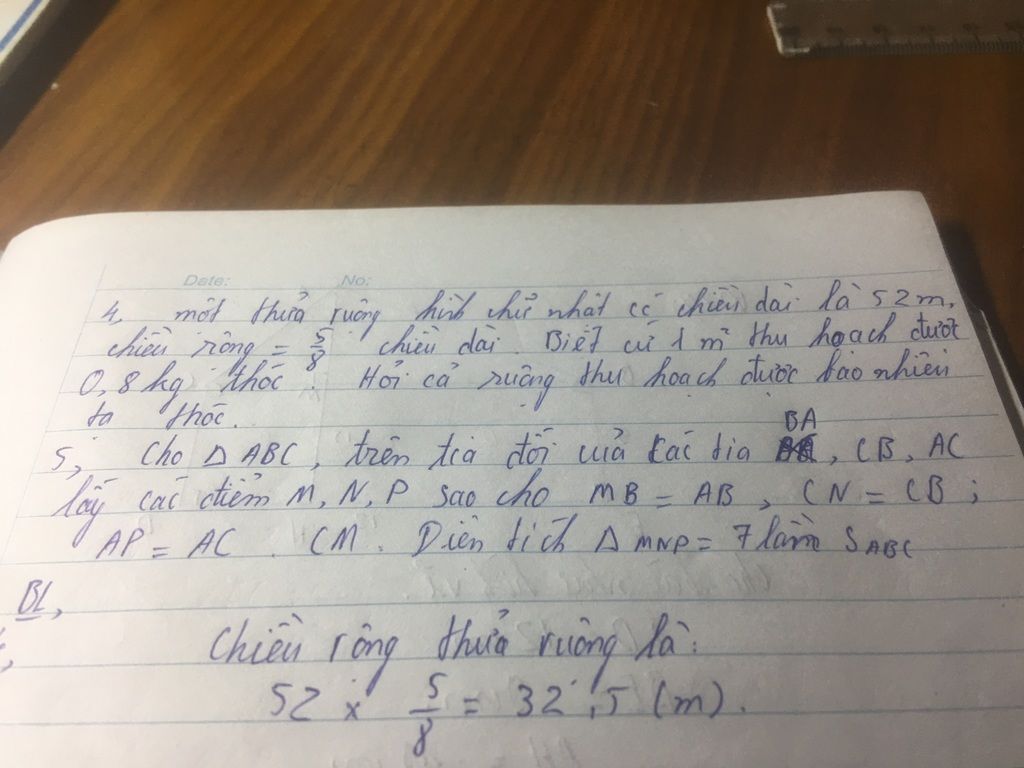 Date: No:
4, một thửa ruộng hình chữ nhật có chiều dài là 52m,
chiều rộng = 5/8 chiều dài. Biết cứ 1 m² thu hoạch được
0,8kg thóc. Hỏi cả ruộng thu hoạch được bao nhiên
tạ thóc.
BA
5, Cho △ ABC, trên tia đối của các tia , CB, AC
lấy các điểm M, N, P sao cho MB = AB, CN = CB;
AP = AC. CM. Diện tích △ MNP = 7 lầm SABC
BL,
Chiều rộng thửa ruộng là:
52 x 5/8 = 32,5 (m).